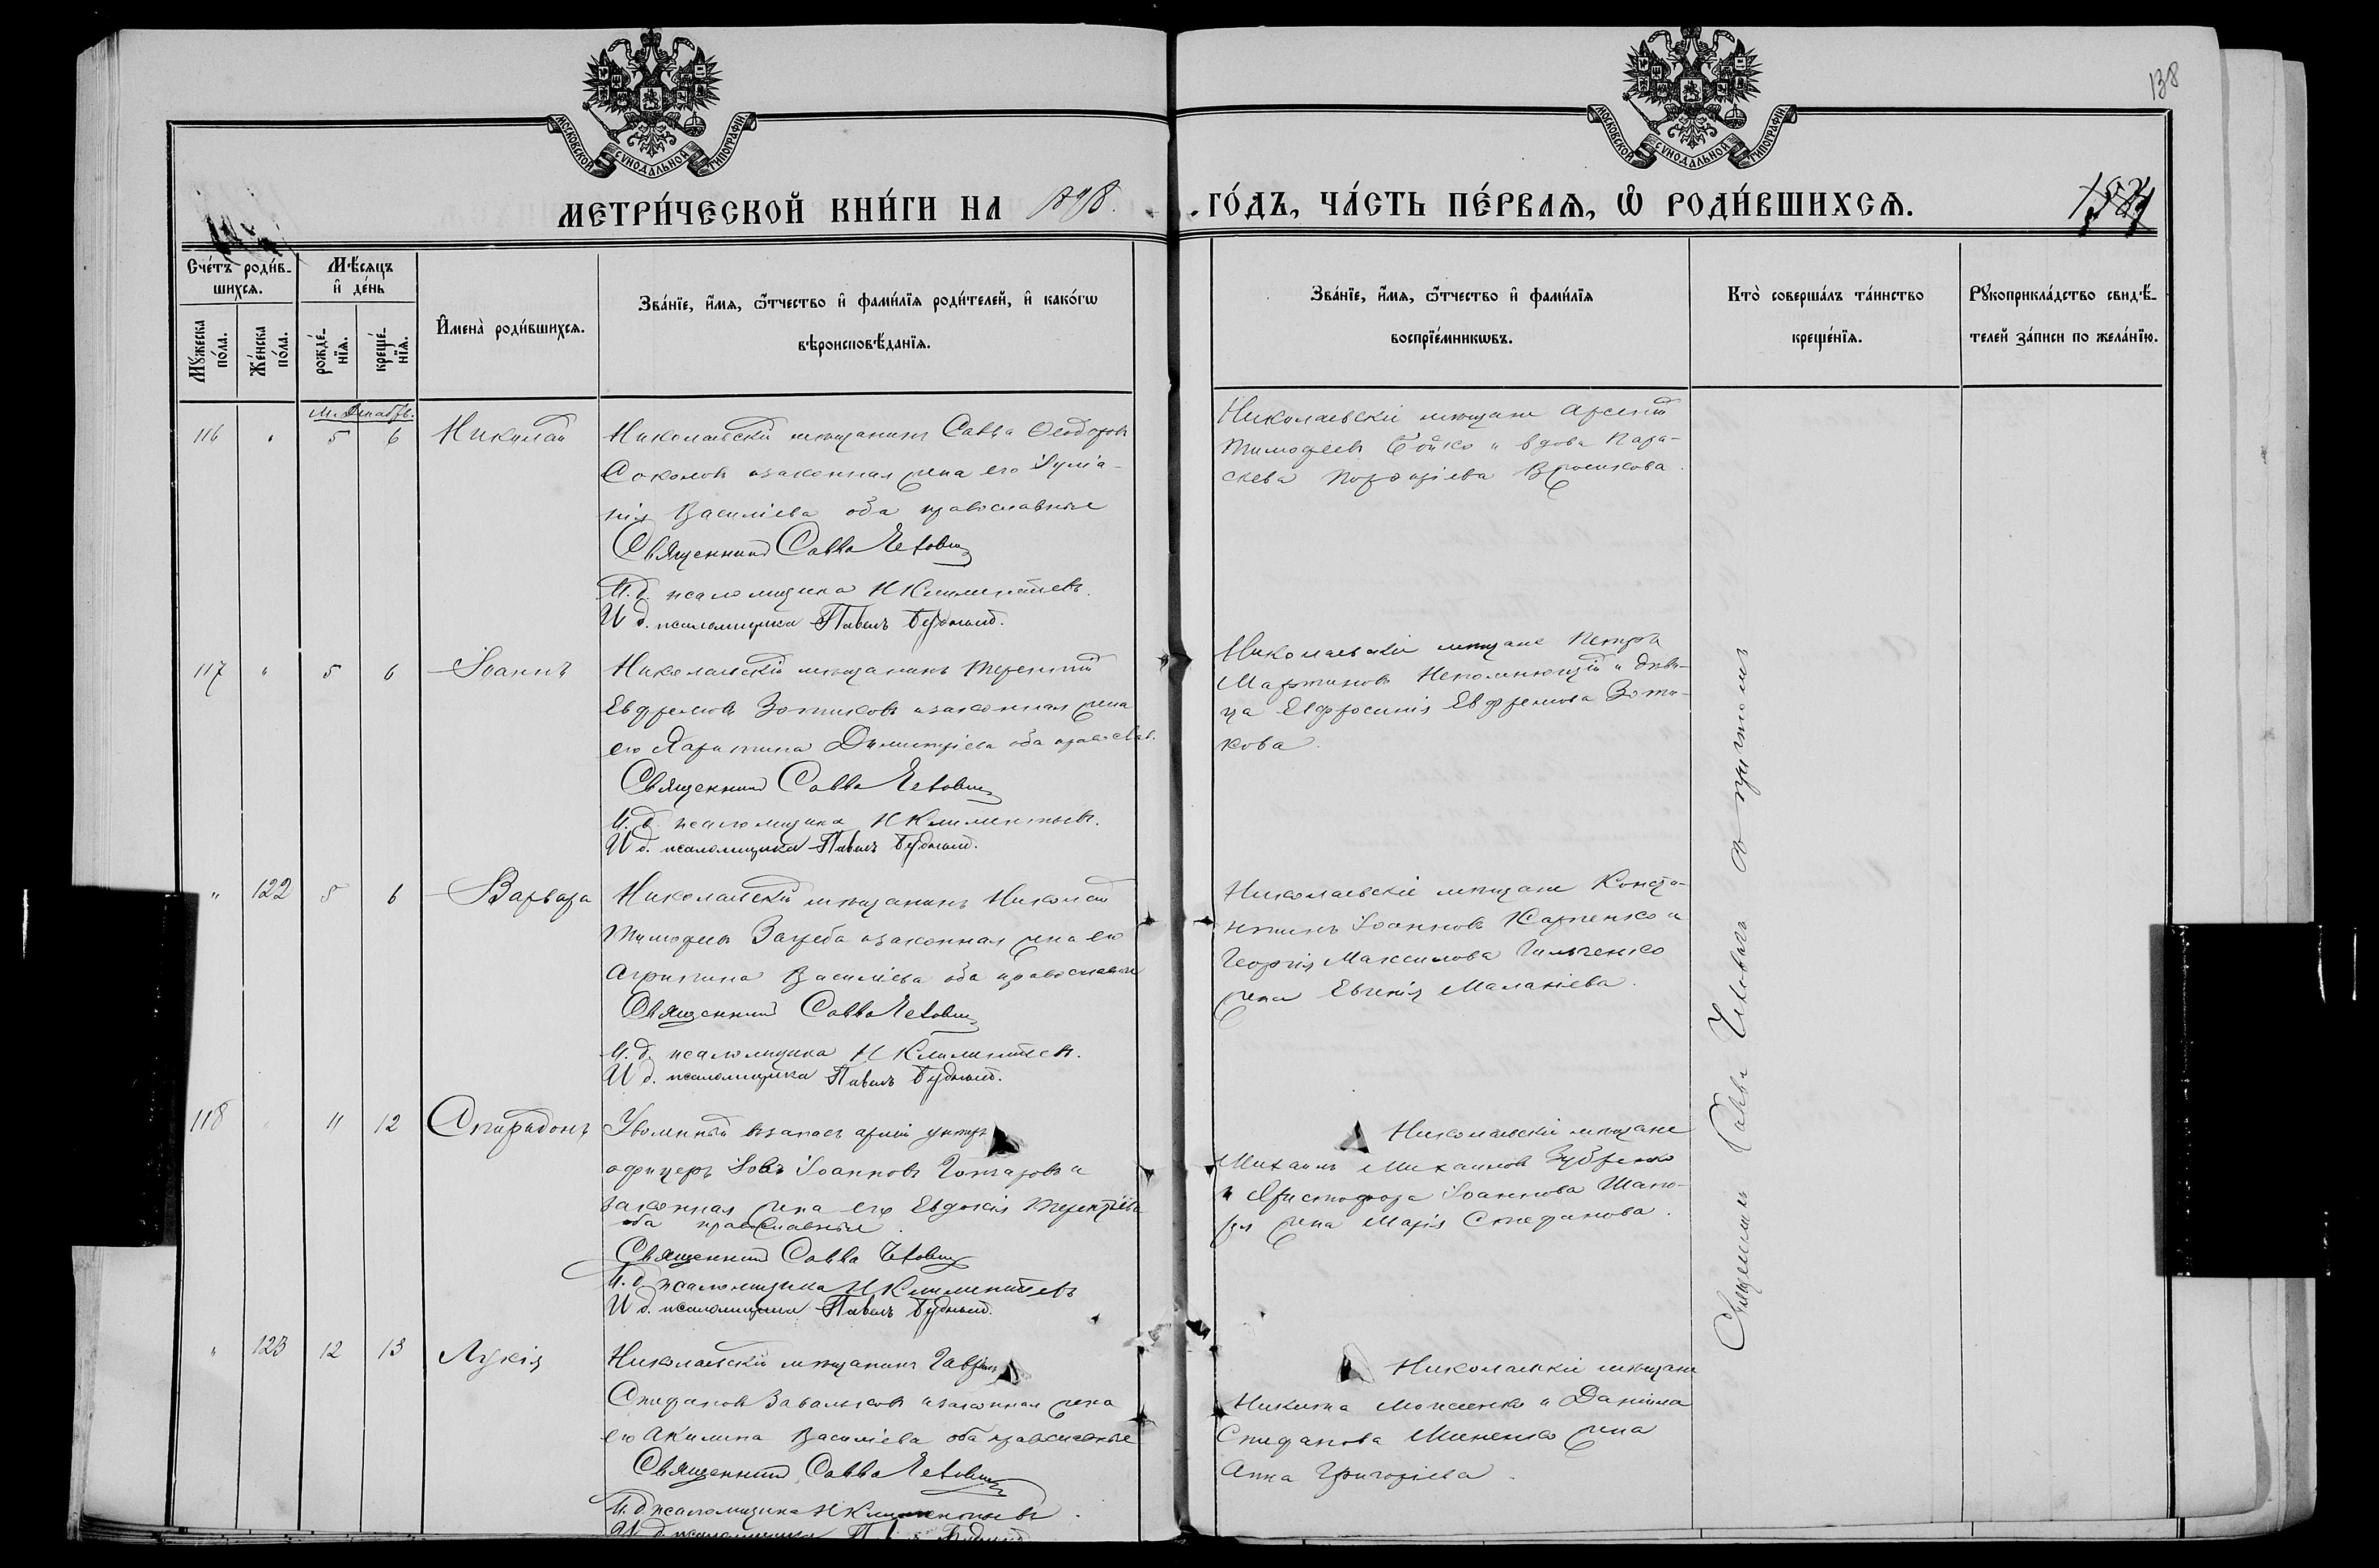 138
МОСКОВСКОЙ СѴНОДАЛЬНОЙ ТИПОГРАФІИ
МОСКОВСКОЙ СѴНОДАЛЬНОЙ ТИПОГРАФІИ
МЕТРИ́ЧЕСКОЙ КНИ́ГИ НА 1898.
ГО́ДЪ, ЧА́СТЬ ПЕ́РВАѦ, Ѡ҆ РОДИ́ВШИХСѦ.
Сче́тъ роди́в-
шихсѧ.
Мꙋ́жеска
по́ла.
Же́нска
по́ла.
Мѣ́сѧцъ
и҆ де́нь
рожде́-
нїѧ.
креще́-
нїѧ.
И҆мена̀ роди́вшихсѧ.
Зва́нїе, и҆́мѧ, ѻ҆́тчество и҆ фами́лїѧ роди́телей, и҆ како́гѡ
вѣроисповѣ́данїѧ.
Зва́нїе, и҆́мѧ, ѻ҆́тчество и҆ фами́лїѧ
воспрїе́мникѡвъ.
Кто̀ соверша́лъ та́инство
креще́нїѧ.
Рꙋкоприкла́дство свидѣ́-
телей за́писи по жела́нїю.
М. Декабрь.
116 " 5 6 Николай
Николаевскій мѣщанинъ Савва Ѳеодоровъ
Соколовъ и законная жена его Іуліа-
нія Василіева оба православные
Священникъ Савва Чехович
И. д. псаломщика Н Климентьевъ.
И д. псаломщика Павелъ Будный.
Николаевскіе мѣщане Арсеній
Тимофеевъ Бойко и вдова Пара-
скева Порфиріева
117 " 5 6 Іоаннъ
Николаевскій мѣщанинъ Терентій
Евфремовъ Зотиковъ и законная жена
его Харитина Димитріева оба православ.
Священникъ Савва Чехович
И. д. псаломщика Н Климентьевъ.
И д. псаломщика Павелъ Будный.
Николаевскіе мѣщане Петръ
Мартиновъ Непомнющій и дѣви-
ца Евфросинія Евфремова Зоти-
кова.
" 122 5 6 Варвара
Николаевскій мѣщанинъ Николай
Тимофеевъ Загреба и законная жена его
Агрипина Василіева оба православные
Священникъ Савва Чехович
И. д. псаломщика Н Климентьевъ.
И д. псаломщика Павелъ Будный.
Николаевскіе мѣщане Конста-
нтинъ Іоанновъ Карпенко и
Георгія Максимова Гильченко
жена Евгенія Маланіева.
118 " 11 12 Спиридонъ
Уволенный въ запасъ арміи унтеръ
офицеръ Іовъ Іоанновъ Гончаровъ и
законная жена его Евдокія Терентіева
оба православные.
Священникъ Савва Чехович
И. д. псаломщика Н Климентьевъ
И д. псаломщика Павелъ Будный.
Николаевскіе мѣщане
Михаилъ Михаиловъ Зубренко
и Христофора Іоаннова Шапо-
жена Марія Стефанова.
" 123 12 13 Лукія
Николаевскій мѣщанинъ Гавріилъ
Стефановъ Завальковъ и законная жена
его Акилина Василіева оба православные
Священникъ Савва Чехович
И. д. псаломщика Н Климентьевъ.
И д. псаломщика Павелъ Будный
Николаевскіе мѣщане
Никита Моисеенко и Даніила
Стефанова Миненко жена
Анна Григоріева.
Священникъ Савва Чеховичъ съ причтомъ